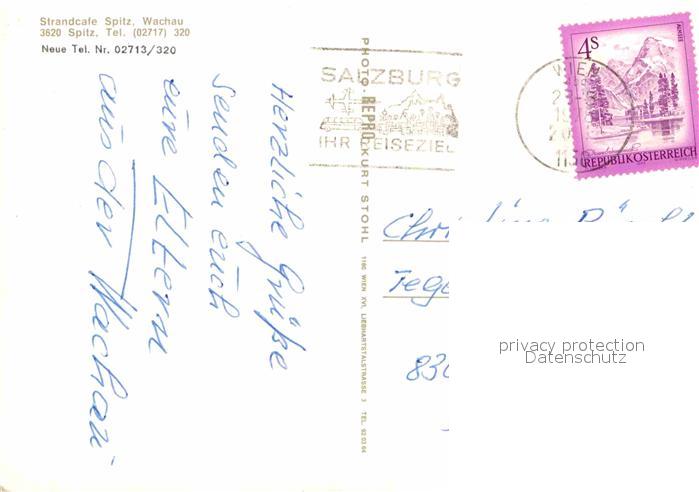 Strandcafe Spitz, Wachau
3620 Spitz, Tel. (02717) 320
Neue Tel. Nr. 02713/320
Herzliche Grüße
senden euch
eure Eltern
aus der Wachau
PHOTO-REPRO KURT STOHL
1160 WIEN XVI, LIEBHARTSTALSTRASSE 3 TEL. 92 03 64
SALZBURG
IHR REISEZIEL
WIEN
4S
ALMSEE
REPUBLIK ÖSTERREICH
privacy protection
Datenschutz